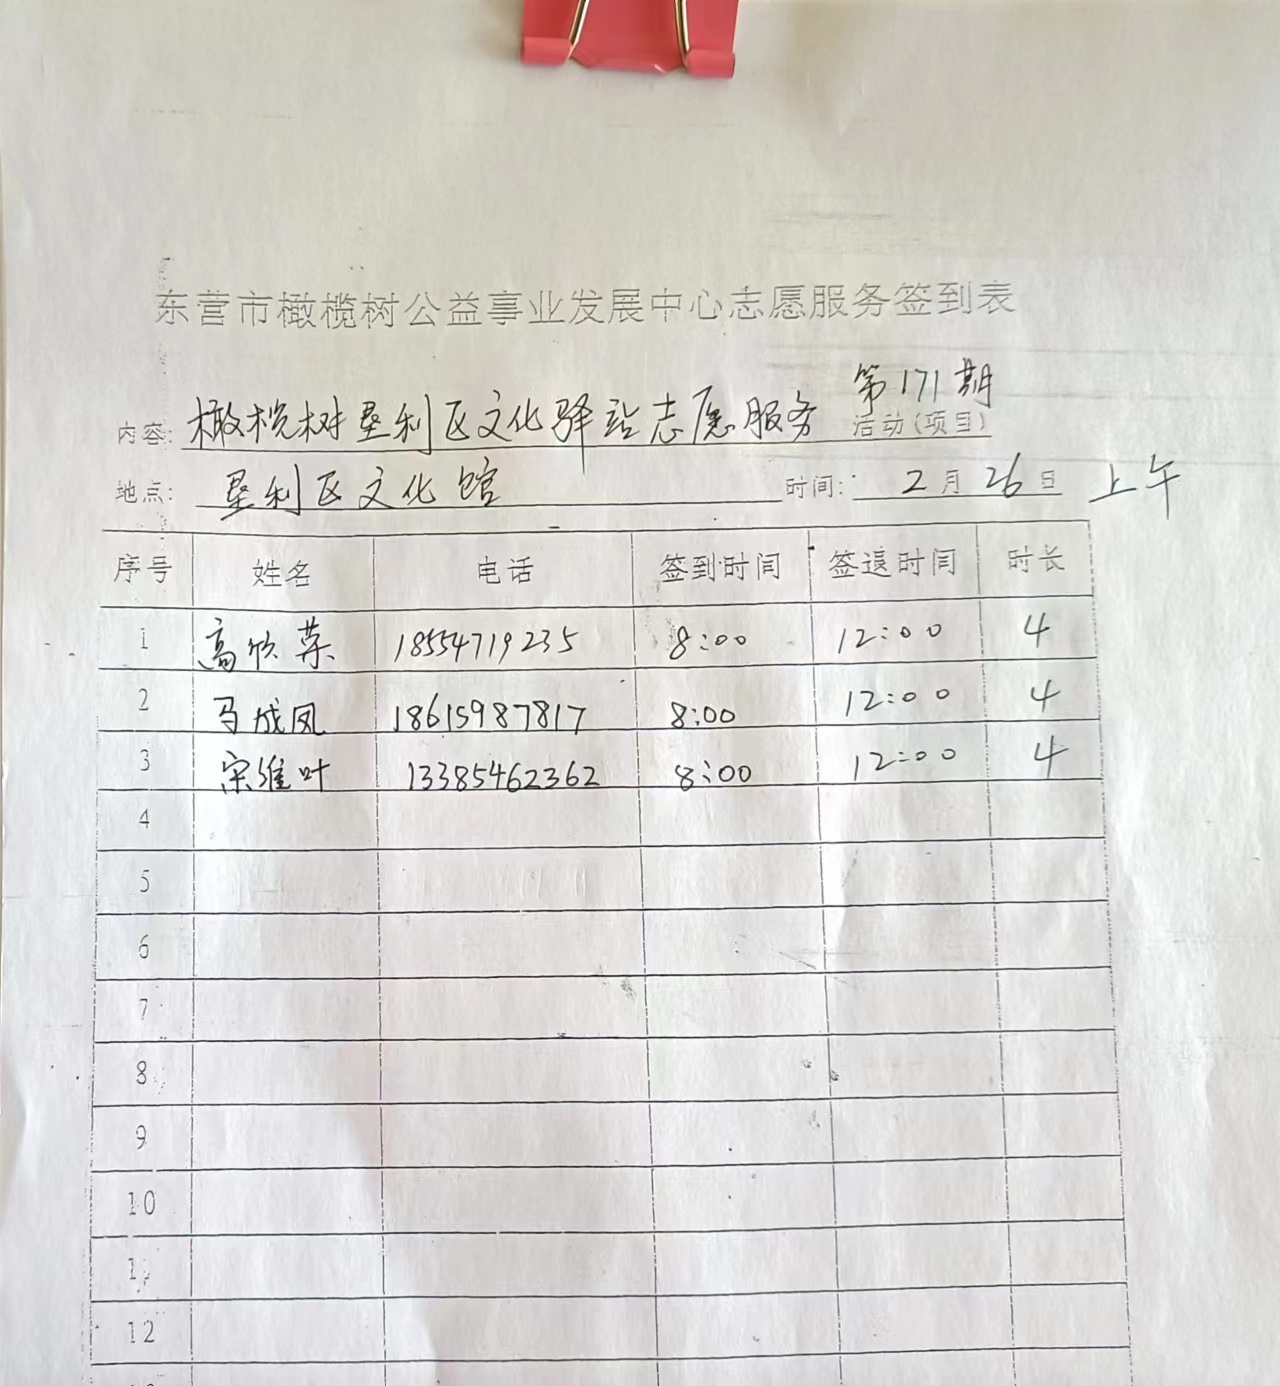 东营市橄榄树公益事业发展中心志愿服务签到表
第171期
内容: 橄榄树垦利区文化驿站志愿服务 活动(项目)
地点: 垦利区文化馆 时间: 2月26日 上午
序号 姓名 电话 签到时间 签退时间 时长
1 高欣荣 18554719235 8:00 12:00 4
2 马成凤 18615987817 8:00 12:00 4
3 宋维叶 13385462362 8:00 12:00 4
4
5
6
7
8
9
10
11
12